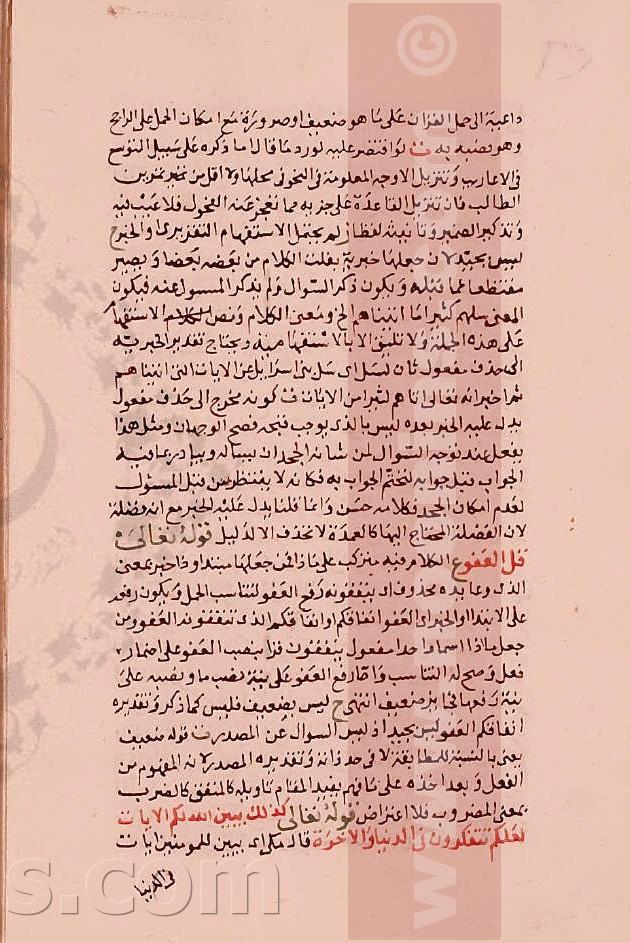 داعية الى حمل القران على ما هو ضعيف او ضرورة مع امكان الحمل على الراجح
وهو نصبه به ت لو اقتصر عليه لورد ما قال اما ذكره على سبيل التوسع
فى الاعاريب وتنزيل الاوجه المعلومة فى النحو فى محلها ولا اقل من تمرين
الطالب فان تنزيل القاعدة على جزيه مما تعجز عنه الفحول فلا عيب فيه
وتذكير الضمير وتانيثه لفظا ز لم يحتمل الاستفهام التقريرى والخبرح
ليس بجيد لان جعلها خبرية يفلت الكلام من بعضه بعضا ويصير
مقتطعا عما قبله ويكون ذكر السوال ولم يذكر المسول عنه فيكون
المعنى سلهم كثيرا ما اتيناهم الخ ومعنى الكلام ونص الكلام الاستفها
على هذه الجملة ولا تليق الا بالاستفهام منه ويحتاج تقدير الخبرية
الى حذف مفعول ثان لسل اى سل بنى اسرايل عن الايات التى اتيناهم
ثم اخبر انه تعالى اتاهم كثيرا من الايات ت كونه مخرج الى حذف مفعول
يدل عليه الخبر بعده ليس بالذى يوجب قبحه فصح الوجهان ومثل هذا
يفعل عند توجه السوال لمن شانه الجحدان يساله ويبادر بما فيه
الجواب قبل جوابه لتحتم الجواب به فكانه لا ينتظر من قبل المسئول
لعدم امكان الجحد فكلامه حسن واما قلنا يدل عليه الخبر مع انه فضلة
لان الفضلة المحتاج اليها كالعمدة لا تحذف الا لدليل قوله تعالى
قل العفوع الكلام فيه متركب على ماذا فمن جعلها مبتدا وذا خبر بمعنى
الذى وعايده محذوف اى ينفقونه رفع العفو لتتناسب الجمل ويكون رفعه
على الابتدا والخبر اى العفو انفاقكم او انفاقكم الذى تنفقونه العفو ومن
جعل ماذا اسما واحدا مفعول ينفقون قرا بنصب العفو على اضمار
فعل وصح له التناسب واما رفع العفو على نية نصب ما ونصبه على
نية رفعها فجايز ضعيف انتهى ح ليس بضعيف فليس كما ذكر وتقديره
انفاقكم العفو ليس بجيد اذ ليس السوال عن المصدر ت قوله ضعيف
يعنى بالنسبة للمطابقة لا فى حد ذاته وتقديره المصدر لانه المفهوم من
الفعل وبعد اخذه على ما فهم يفيد المقام تاويله كالمنفق كالضرب
بمعنى المضروب فلا اعتراض قوله تعالى كذلك يبين الله لكم الايات
لعلكم تتفكرون فى الدنيا والاخرة قال مكى اى يبين للمومنين ايات
فى الدنيا
s.com